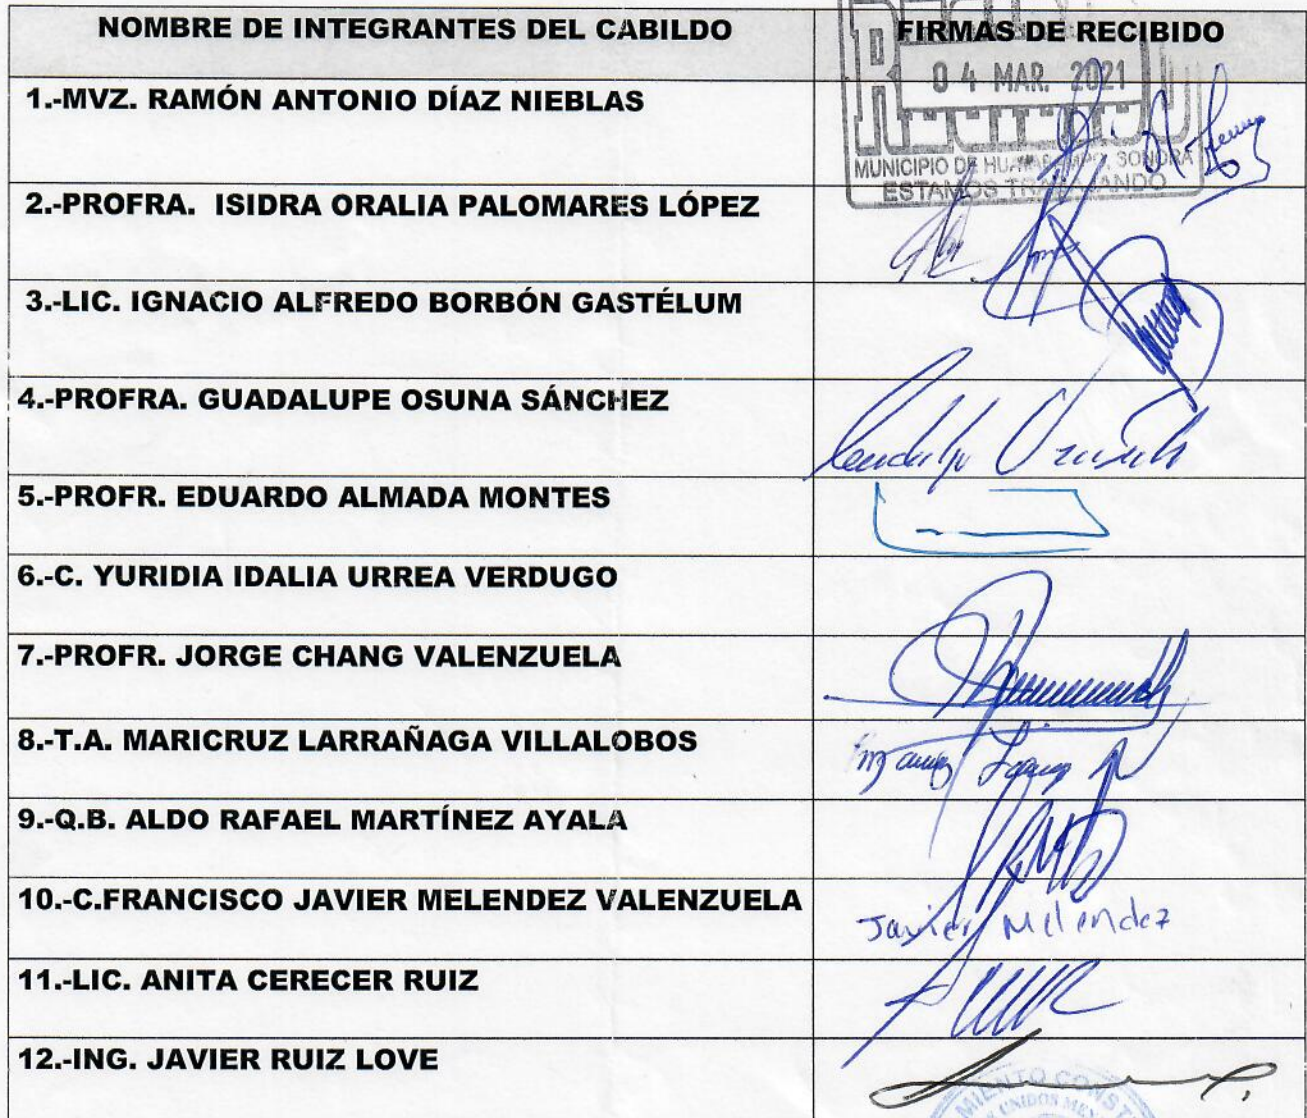 NOMBRE DE INTEGRANTES DEL CABILDO
FIRMAS DE RECIBIDO
04 MAR. 2021
MUNICIPIO DE HUATABAMPO, SONORA
ESTAMOS TRABAJANDO
1.-MVZ. RAMÓN ANTONIO DÍAZ NIEBLAS
2.-PROFRA. ISIDRA ORALIA PALOMARES LÓPEZ
3.-LIC. IGNACIO ALFREDO BORBÓN GASTÉLUM
4.-PROFRA. GUADALUPE OSUNA SÁNCHEZ
5.-PROFR. EDUARDO ALMADA MONTES
6.-C. YURIDIA IDALIA URREA VERDUGO
7.-PROFR. JORGE CHANG VALENZUELA
8.-T.A. MARICRUZ LARRAÑAGA VILLALOBOS
9.-Q.B. ALDO RAFAEL MARTÍNEZ AYALA
10.-C.FRANCISCO JAVIER MELENDEZ VALENZUELA
Javier Melendez
11.-LIC. ANITA CERECER RUIZ
12.-ING. JAVIER RUIZ LOVE